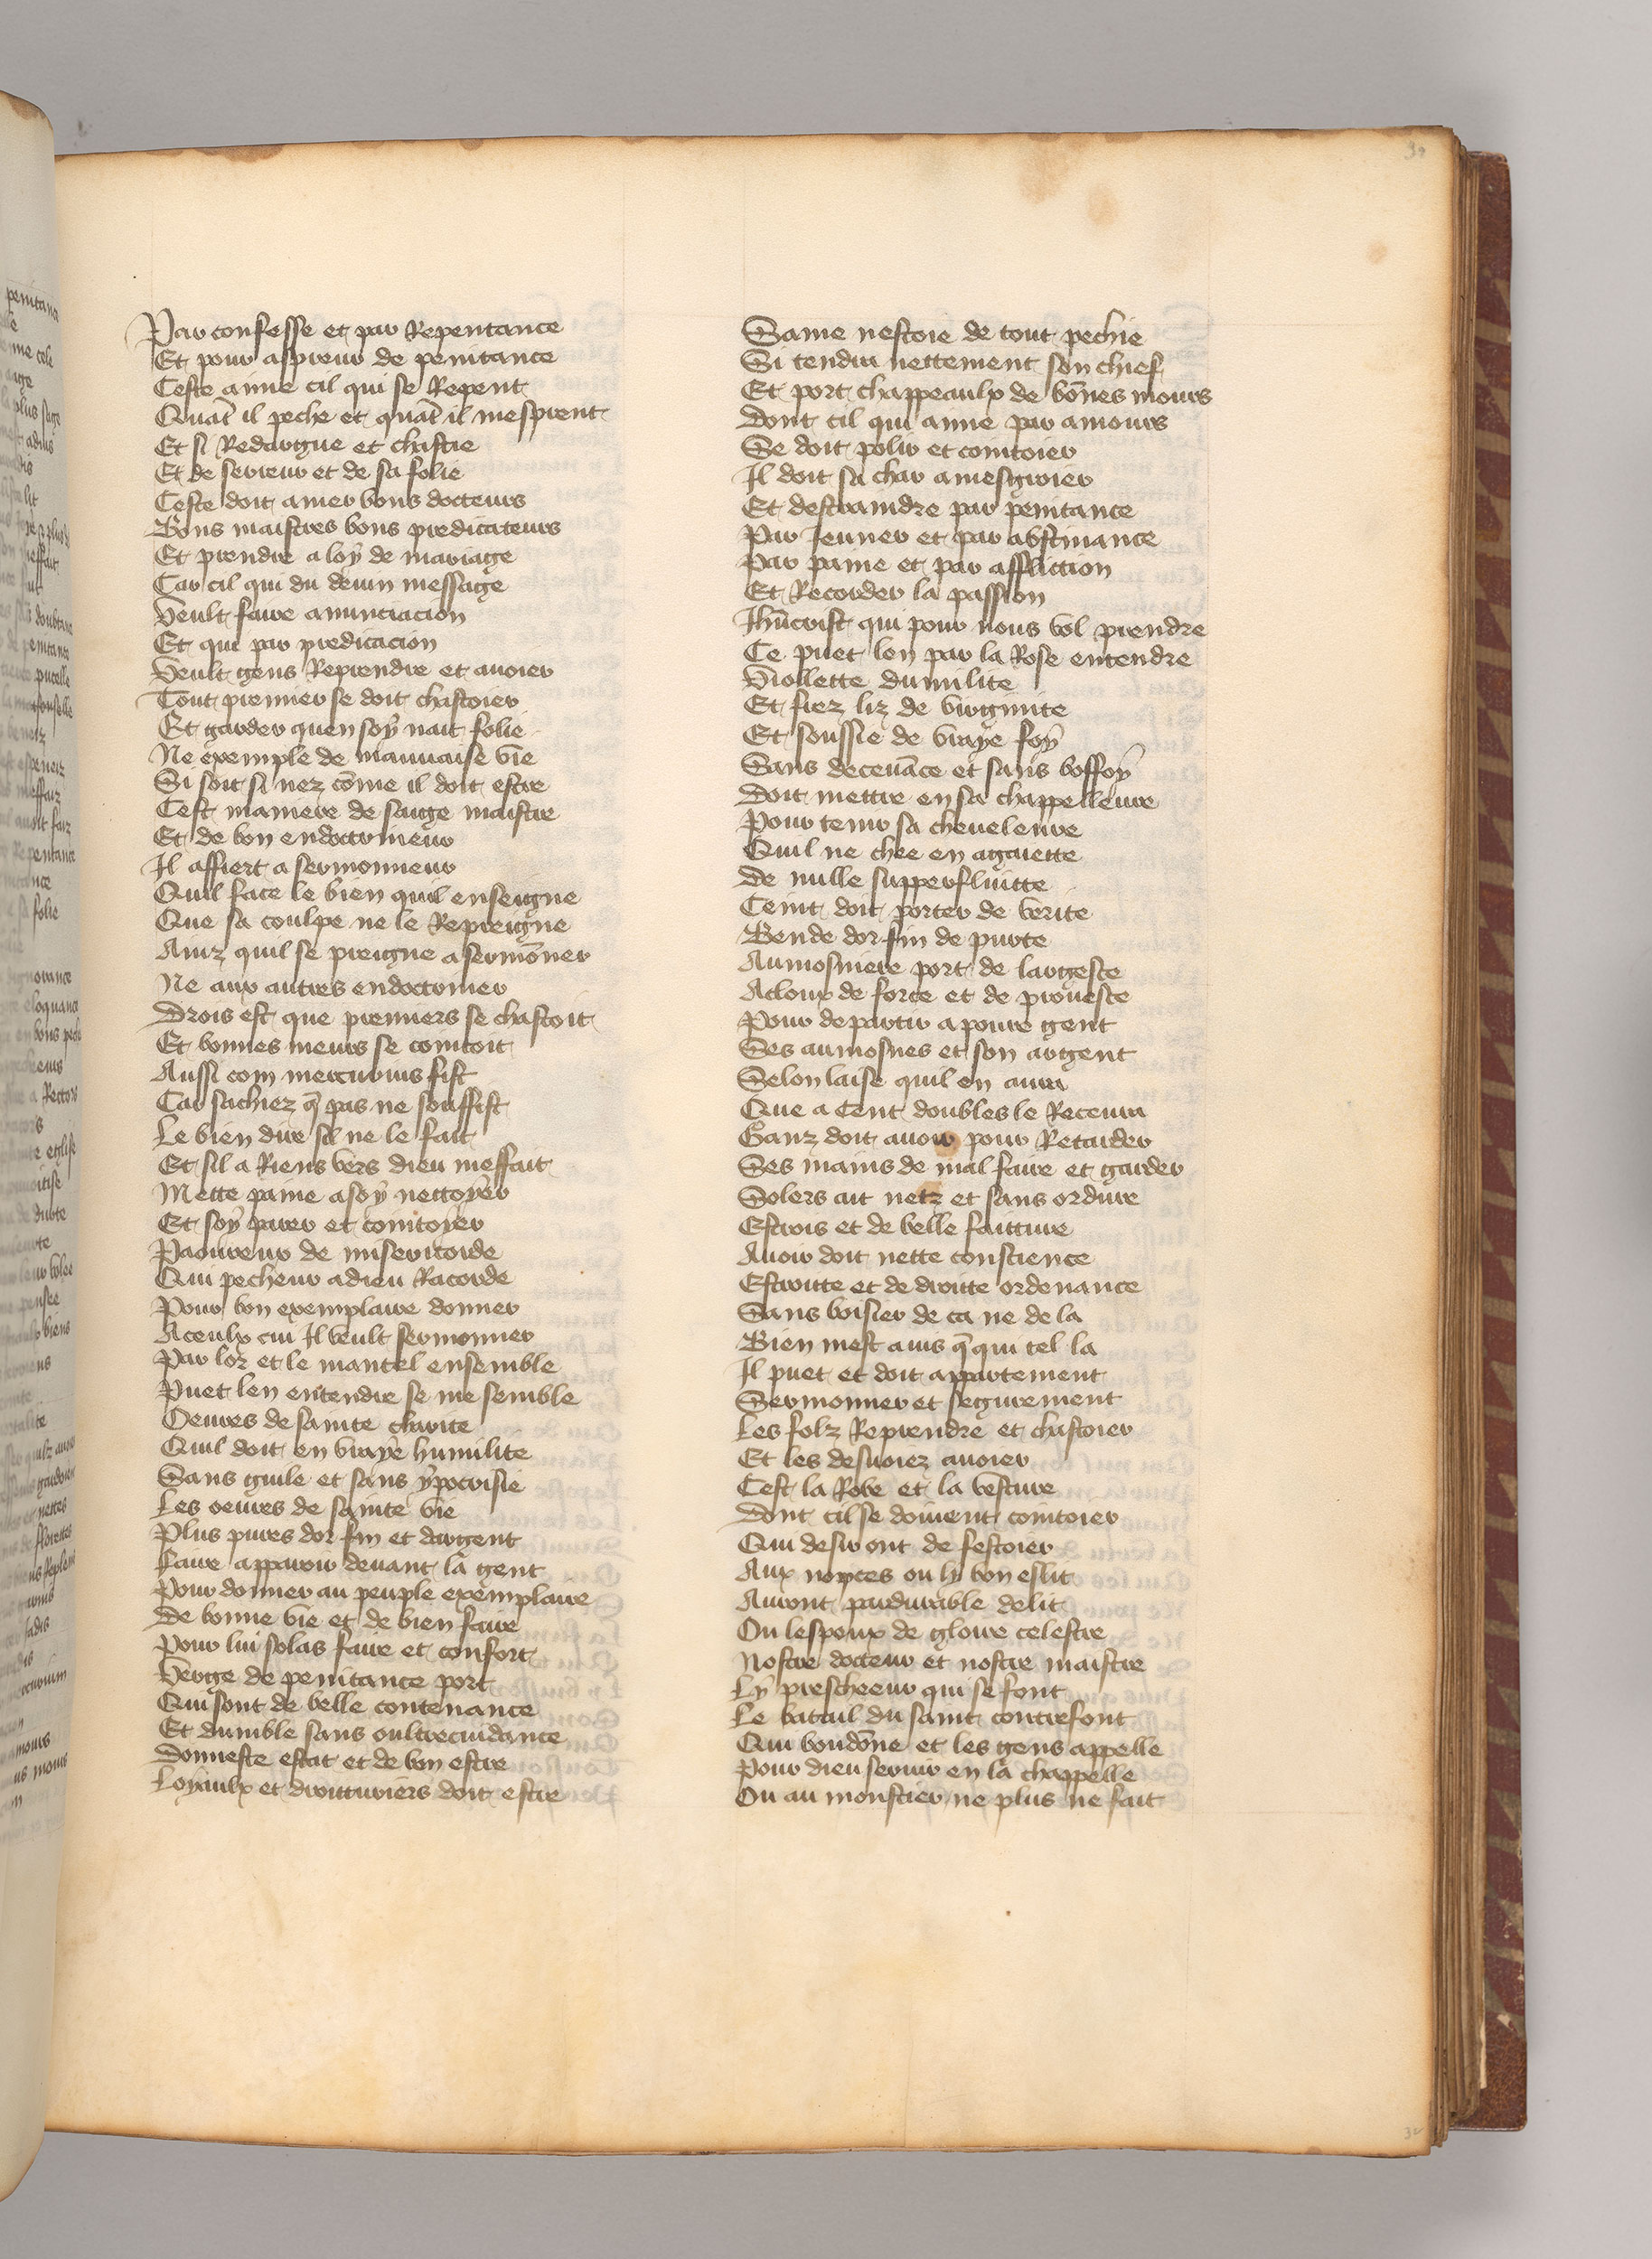 Par confesse et par Repentance
Et pour aspreur de penitance
Ceste aime cil qui se Repent
Quāt il peche et quāt il mesprent
Et si Redargue et chastie
Et de serreur et de sa folie
Ceste doit amer bons docteurs
Bons maistres bons predicateurs
Et prendre a loy de mariage
Car cil qui du deuin message
Veult faire anunciacion
Et qui par predicacion
Veult gens Reprendre et auoier
Tout premier se doit chastoier
Et garder quen soy nait folie
Ne exemple de mauuaise vie
Si soit si nez cōme il doit estre
Cest maniere de saige maistre
Et de bon endoctrineur
Il affiert a sermonneur
Quil face le bien quil enseigne
Que sa coulpe ne le Repreigne
Ainz quil se preigne a sermōner
Ne aux autres endoctriner
Drois est que premiers se chastoit
Et bonnes meurs se cointoit
Aussi com mercurius fist
Car sachiez q̄ pas ne souffist
Le bien dire sil ne le fait
Et sil a Riens vers dieu meffait
Mette paine a soy nettoyer
Et soy parer et cointoyer
Paoureur de misericorde
Qui pecheur a dieu Racorde
Pour bon exemplaire donner
A ceulx cui Il veult sermonner
Par lor et le mantel ensemble
Puet len entendre se me semble
Oeures de sainte charite
Quil doit en vraye humilite
Sans guile et sans ypocrisie
Les oeures de sainte vie
Plus pures dor fin et dargent
Faire apparoir deuant la gent
Pour donner au peuple exemplaire
De bonne vie et de bien faire
Pour lui solas faire et confort
Verge de penitance port
Qui sont de belle contenance
Et dumble sans oultrecuidance
Donneste estat et de bon estre
Loyaulx et droitturiers doit estre
Same nestoie de tout pechie
Si tendra nettement son chief
Et port chappeaulx de bōnes mours
Dont cil qui aime par amours
Se doit polir et cointoier
Il doit sa char amesgroier
Et destraindre par penitance
Par Jeuner et par abstinance
Par paine et par affliction
Et Recorder la passion
Jhūcrist qui pour nous vol prendre
Ce puet len par la Rose entendre
Viollette dumilite
Et fiez liz de virginite
Et soussie de vraye foy
Sans deceuāce et sans boffoy
Doit mettre en sa chappelleure
Pour tenir sa cheueleure
Quil ne chee en agaiette
De nulle supperfluitte
Ceint doit porter de verite
Bende dor fin de purte
Aumosniere port de largeste
A cloux de force et de proueste
Pour departir a poure gent
Ses aumosnes et son argent
Selon laise quil en aura
Que a Cent doubles le Receura
Ganz doit auoir pour Retarder
Ses mains de mal faire et garder
Solers ait netz et sans ordure
Estrois et de belle faitture
Auoir doit nette conscience
Estroitte et de droitte ordenance
Sans voisier de ca ne de la
Bien mest auis q̄ qui tel la
Il puet et doit appartement
Sermonner et segurement
Les folz Reprendre et chastoier
Et les desuoiez auoier
Cest la Robe et la vesture
Dont cil se doiuent cointoier
Qui desir ont de festoier
Aux nopces ou ly bon eslit
Auront pardurable delit
Ou lespoux de gloire celestre
Nostre docteur et nostre maistre
Ly prescheeur qui se font
Le batail du saint contrefont
Qui bondōne et les gens appelle
Pour dieu seruir en la chappelle
Ou au moustier ne plus ne fait